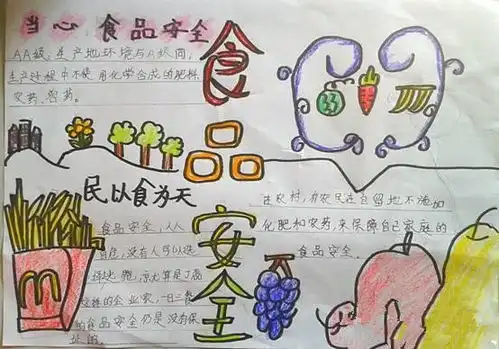 当心食品安全
AA级:生产地环境与A级同,
生产过程中不使用化学合成的肥料
农药、兽药。
食品安全
民以食为天
食品安全,人人
自危,没有人可以选
择逃跑,
的企业家,一日三餐
的食品安全仍是没有保
证的。
在农村,有农民在自留地不施加
化肥和农药,来保障自己家庭的
食品安全。